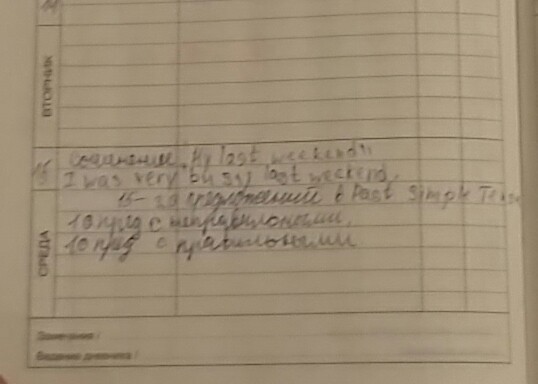 14
ВТОРНИК
15
Сочинение „My last weekend"
I was very bussy last weekend.
15- предложений в Past Simple Tense
10 пред с неправилоными.
10 пред с правильными
СРЕДА
Замечания /
Ведение дневника /